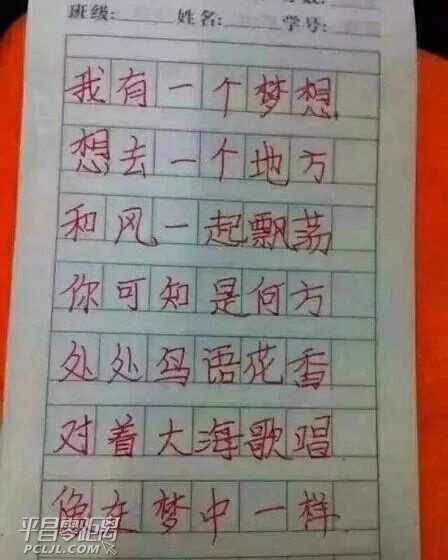 班级: 姓名: 学号:
我有一个梦想
想去一个地方
和风一起飘荡
你可知是何方
处处鸟语花香
对着大海歌唱
像在梦中一样
平昌零距离
PCLJL.COM